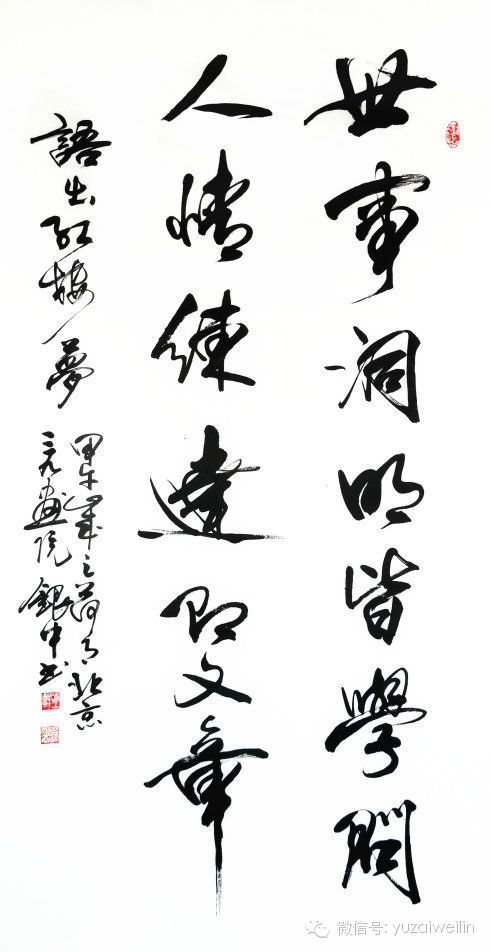 世事洞明皆學問
人情練達即文章
語出紅樓夢
甲午歲之荷月北京
畫院 銀中書
微信号: yuzaiweilin